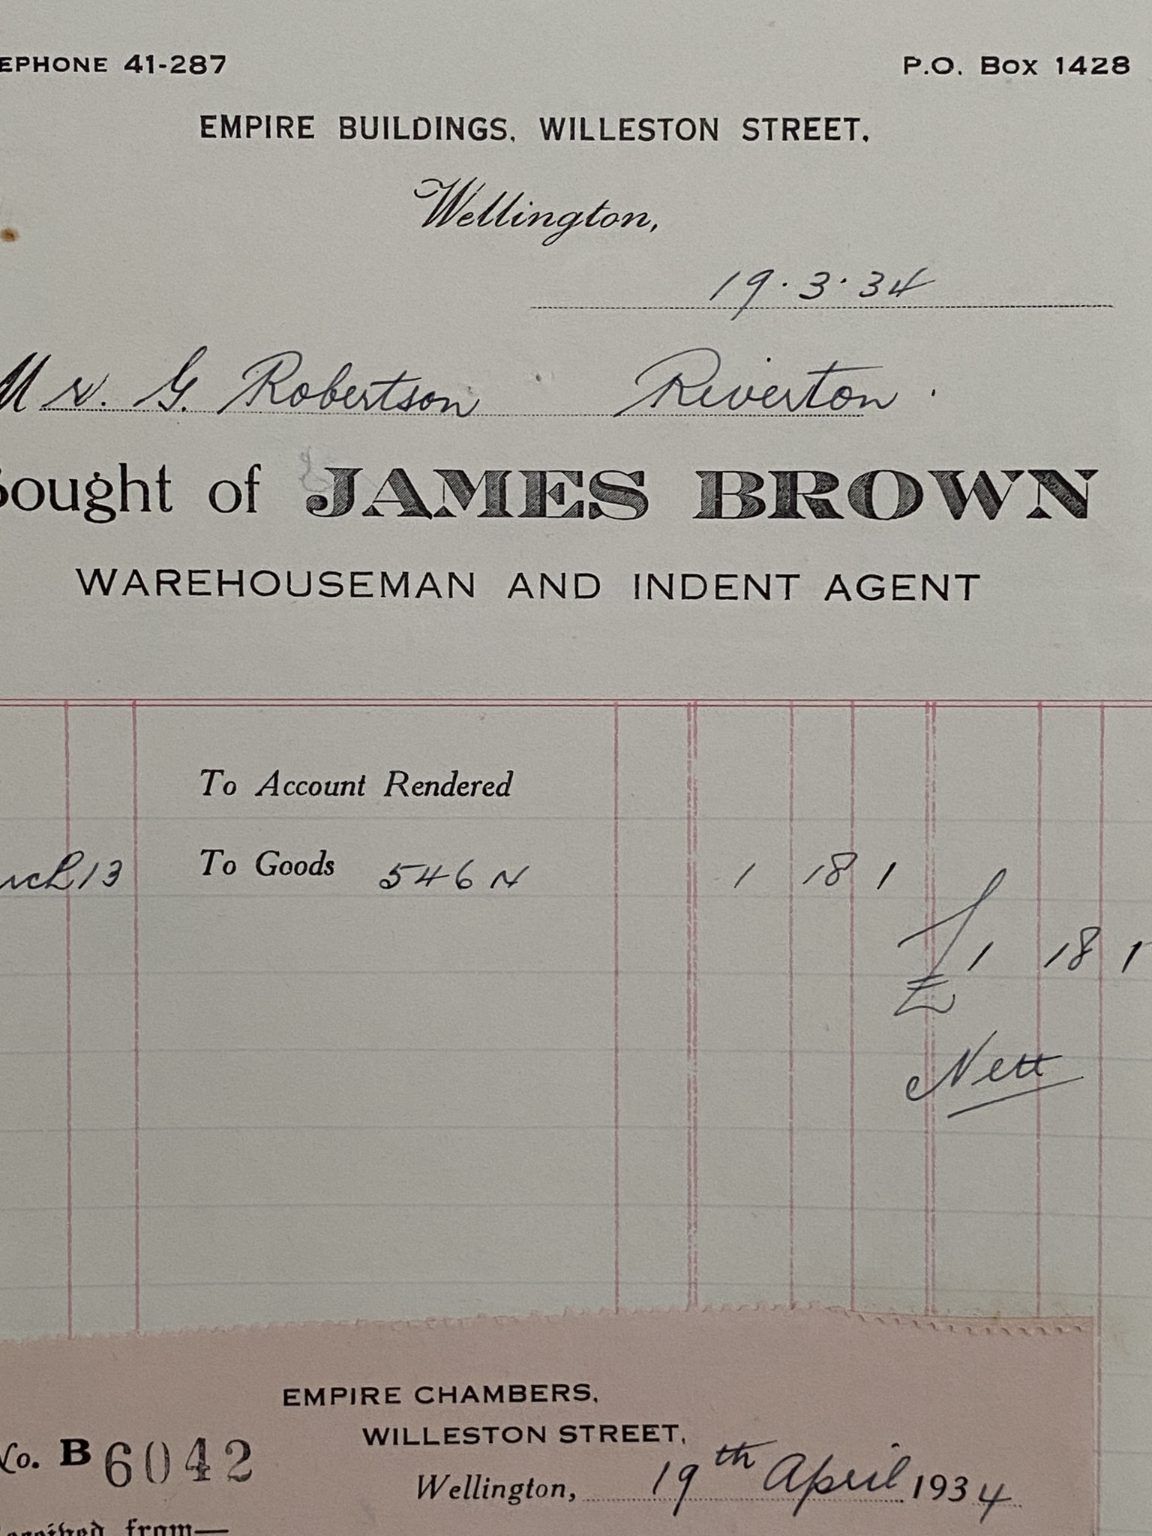 EPHONE 41-287 P.O. Box 1428
EMPIRE BUILDINGS, WILLESTON STREET,
Wellington,
19.3.34
Mr. G. Robertson Riverton.
Bought of JAMES BROWN
WAREHOUSEMAN AND INDENT AGENT
To Account Rendered
rch 13 To Goods 546 N 1 18 1
£1 18 1
E
Nett
EMPIRE CHAMBERS,
WILLESTON STREET,
No. B 6042
Wellington, 19th April 1934
Received from—